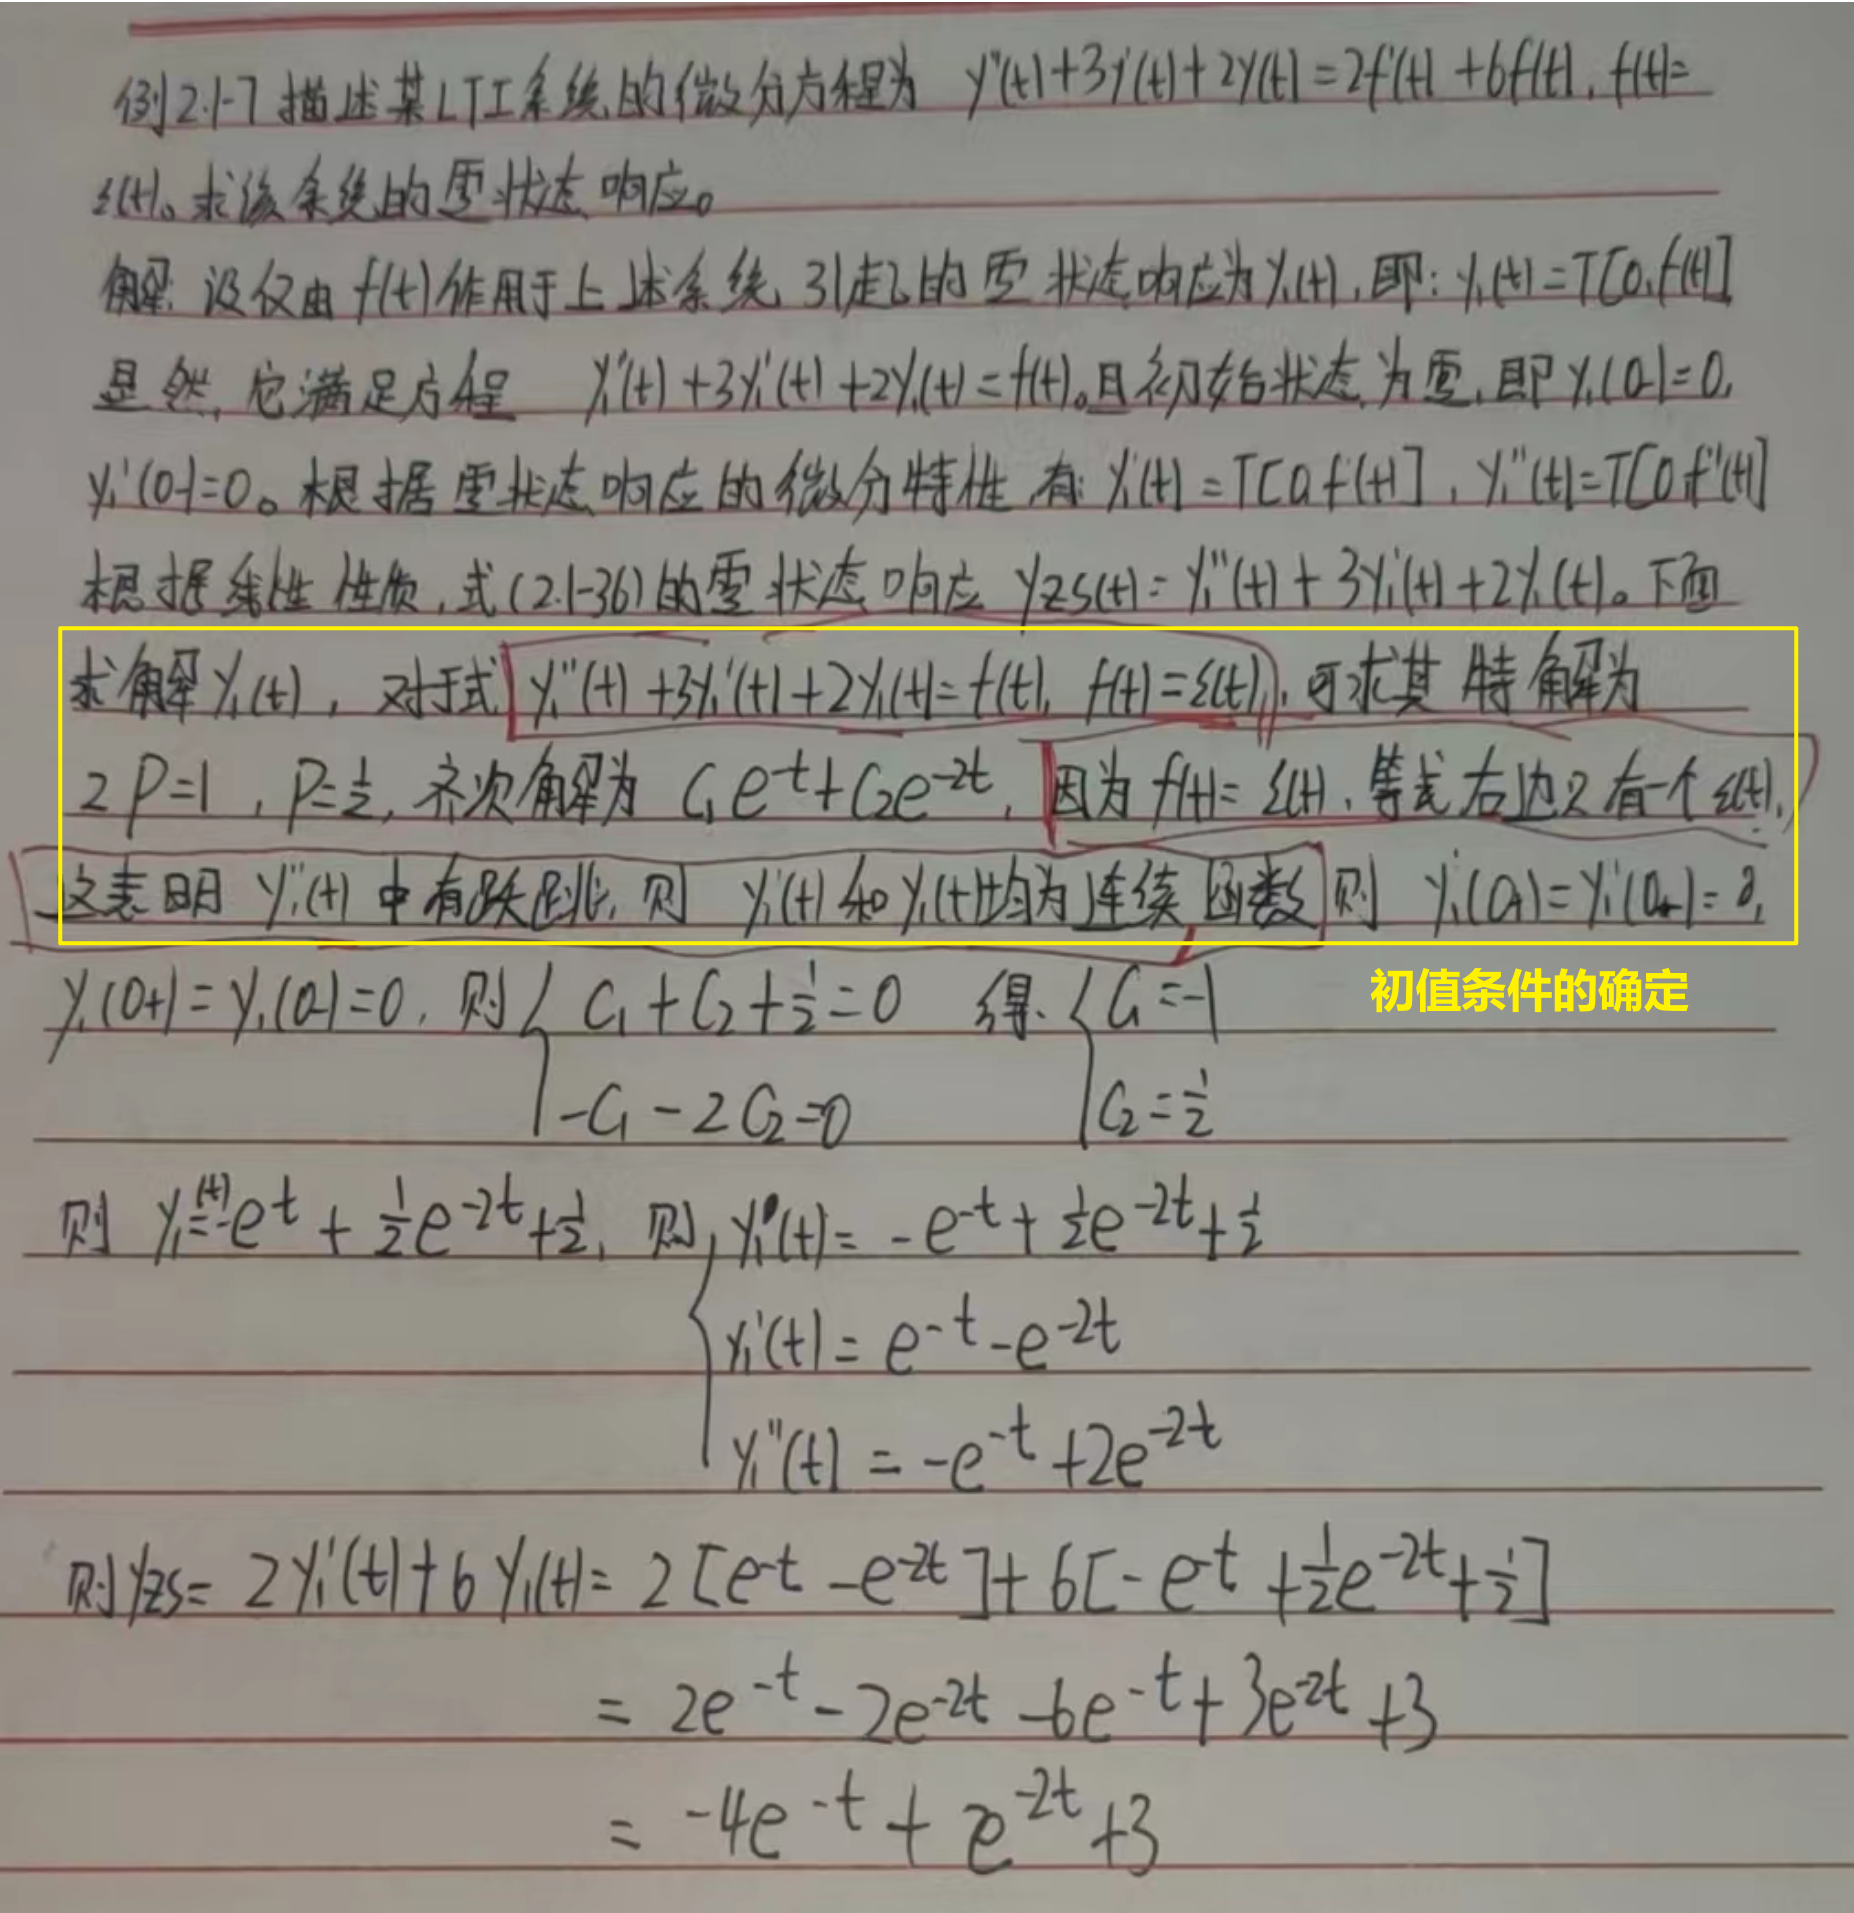 例2.1-7 描述某LTI系统的微分方程为 y''(t)+3y'(t)+2y(t)=2f'(t)+6f(t), f(t)=
ε(t)。求该系统的零状态响应。
解: 设仅由f(t)作用于上述系统引起的零状态响应为y₁(t), 即: y₁(t)=T[0,f(t)]
显然, 它满足方程 y₁''(t)+3y₁'(t)+2y₁(t)=f(t)。且初始状态为零, 即y₁(0-)=0,
y₁'(0-)=0。根据零状态响应的微分特性 有: y₁'(t)=T[0,f'(t)], y₁''(t)=T[0,f''(t)]
根据线性性质, 式(2.1-36)的零状态响应 yzs(t)=y₁''(t)+3y₁'(t)+2y₁(t)。下面
求解y₁(t), 对于式 y₁''(t)+3y₁'(t)+2y₁(t)=f(t), f(t)=ε(t), 可求其特解为
2P=1, P=½, 齐次解为 C₁e^-t+C₂e^-2t, 因为f(t)=ε(t), 等式右边只有一个ε(t),
这表明 y₁''(t)中有跃变, 则 y₁'(t)和y₁(t)均为连续函数 则 y₁'(0+)=y₁'(0-)=0,
初值条件的确定
y₁(0+)=y₁(0-)=0, 则 { C₁+C₂+½=0 得: { C₁=-1
-C₁-2C₂=0 C₂=½
则 y₁(t)=-e^t+½e^-2t+½, 则 { y₁(t)=-e^-t+½e^-2t+½
y₁'(t)=e^-t-e^-2t
y₁''(t)=-e^-t+2e^-2t
则yzs=2y₁'(t)+6y₁(t)=2[e^-t-e^-2t]+6[-e^-t+½e^-2t+½]
=2e^-t-2e^-2t-6e^-t+3e^-2t+3
=-4e^-t+e^-2t+3